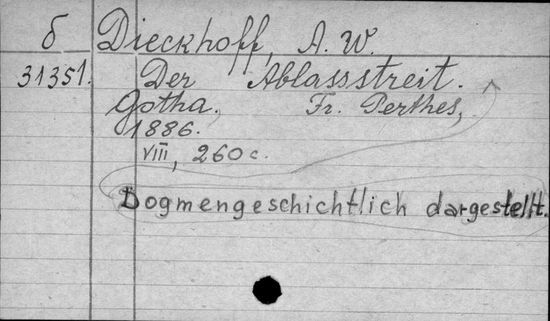 б Dieckhoff, A. W.
31351. Der Ablassstreit.
Gotha. Fr. Perthes,
1886.
VIII, 260 c.
Dogmengeschichtlich dargestellt.